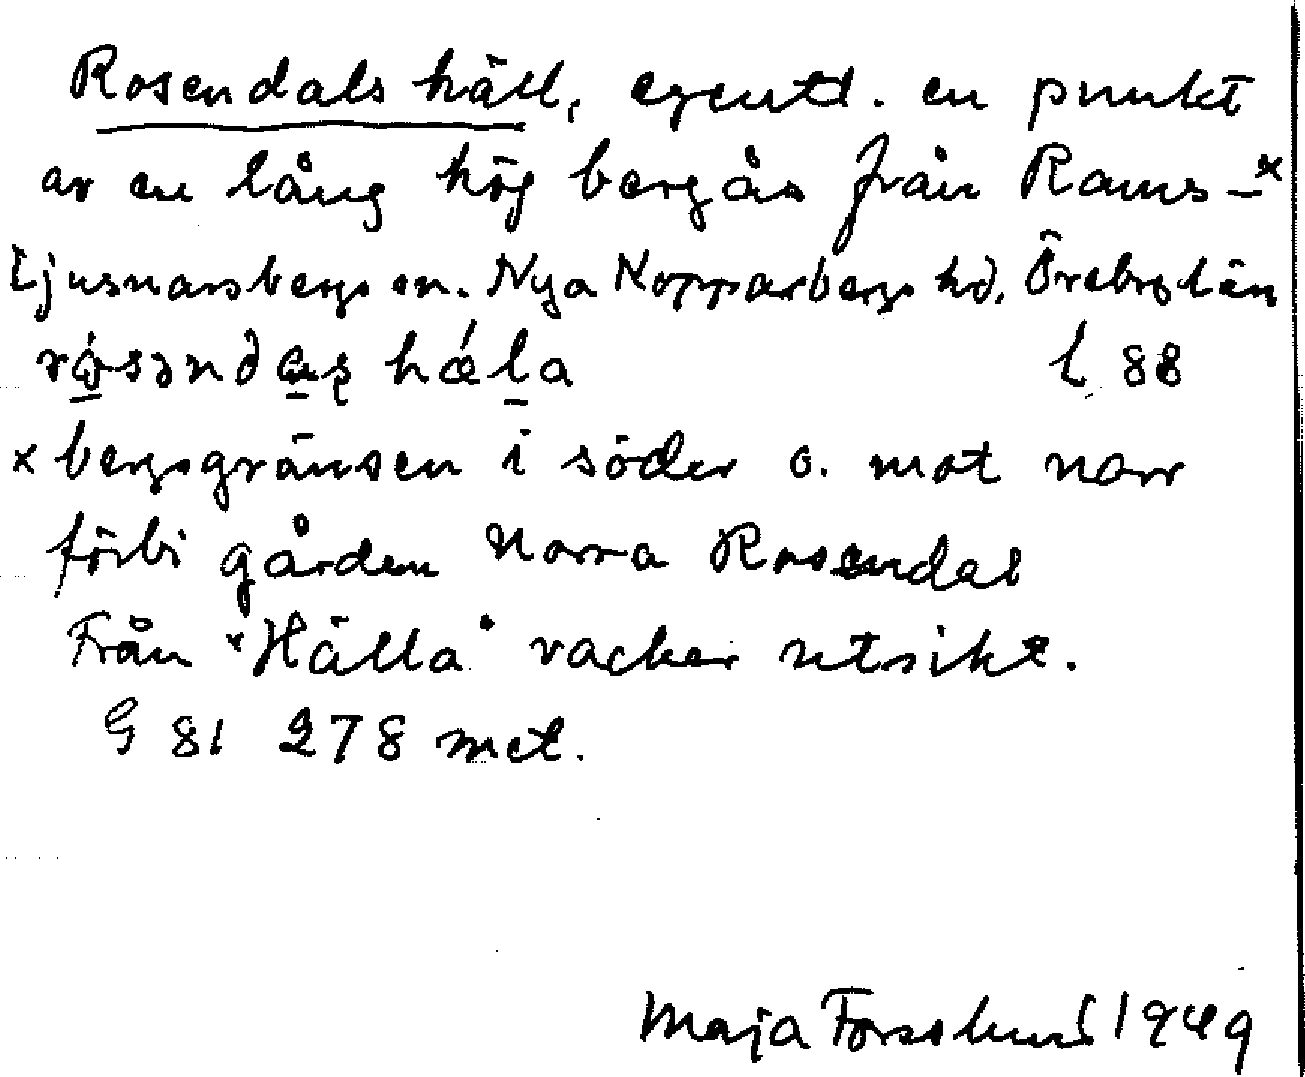 Rosendals häll, egentl. en punkt
av en lång hög bergås från Rams-x
Ljusnarsbergs sn. Nya Kopparbergs hd, Örebro län
hǽla l 88
x bergsgränsen i söder o. mot norr
förbi gården Norra Rosendal
Från "Hälla" vacker utsikt.
G 81 278 met.
Maja Forsslund 1949